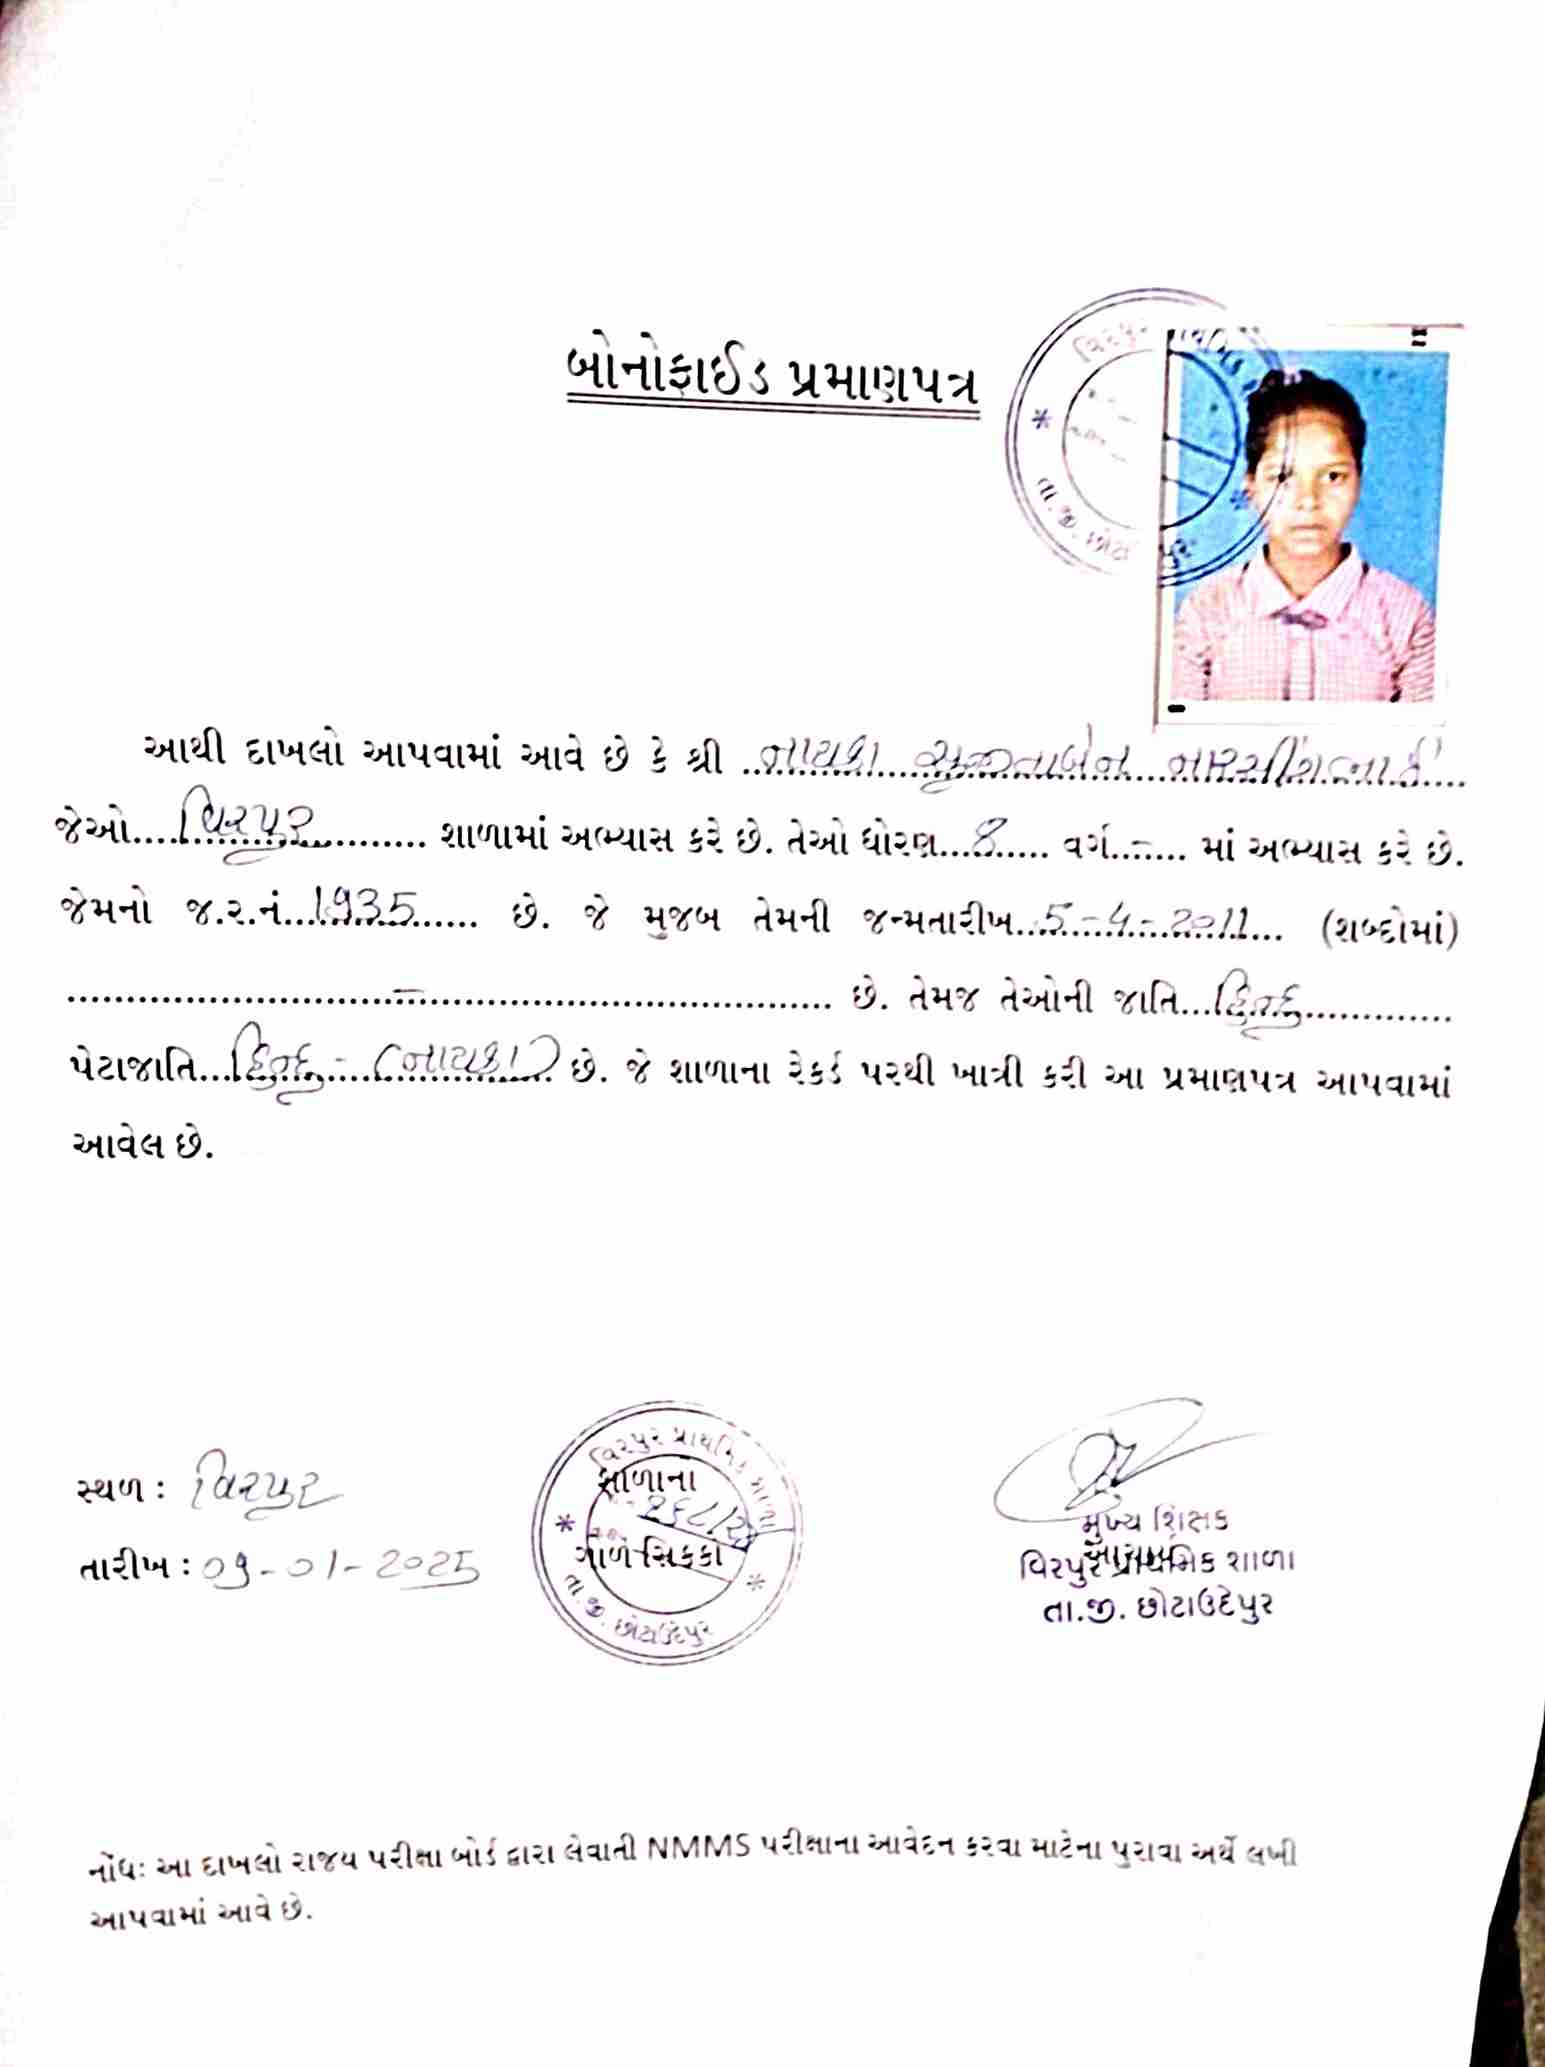 બોનોફાઈડ પ્રમાણપત્ર
આથી દાખલો આપવામાં આવે છે કે શ્રી ..નાયકા સુજીતાબેન નારસીંગભાઈ..
જેઓ....વિરપુર.......... શાળામાં અભ્યાસ કરે છે. તેઓ ધોરણ...8..... વર્ગ..-.... માં અભ્યાસ કરે છે.
જેમનો જ.ર.નં...1935...... છે. જે મુજબ તેમની જન્મતારીખ...5-4-2011... (શબ્દોમાં)
..............................-................................... છે. તેમજ તેઓની જાતિ...હિન્દુ.............
પેટાજાતિ...હિન્દુ - (નાયકા) છે. જે શાળાના રેકર્ડ પરથી ખાત્રી કરી આ પ્રમાણપત્ર આપવામાં
આવેલ છે.
સ્થળ : વિરપુર
તારીખ : 09-01-2025
વિરપુર પ્રાથમિક શાળા
શાળાના
ગોળ સિક્કો
તા.જી. છોટાઉદેપુર
મુખ્ય શિક્ષક
વિરપુર પ્રાથમિક શાળા
તા.જી. છોટાઉદેપુર
નોંધઃ આ દાખલો રાજય પરીક્ષા બોર્ડ દ્વારા લેવાતી NMMS પરીક્ષાના આવેદન કરવા માટેના પુરાવા અર્થે લખી
આપવામાં આવે છે.